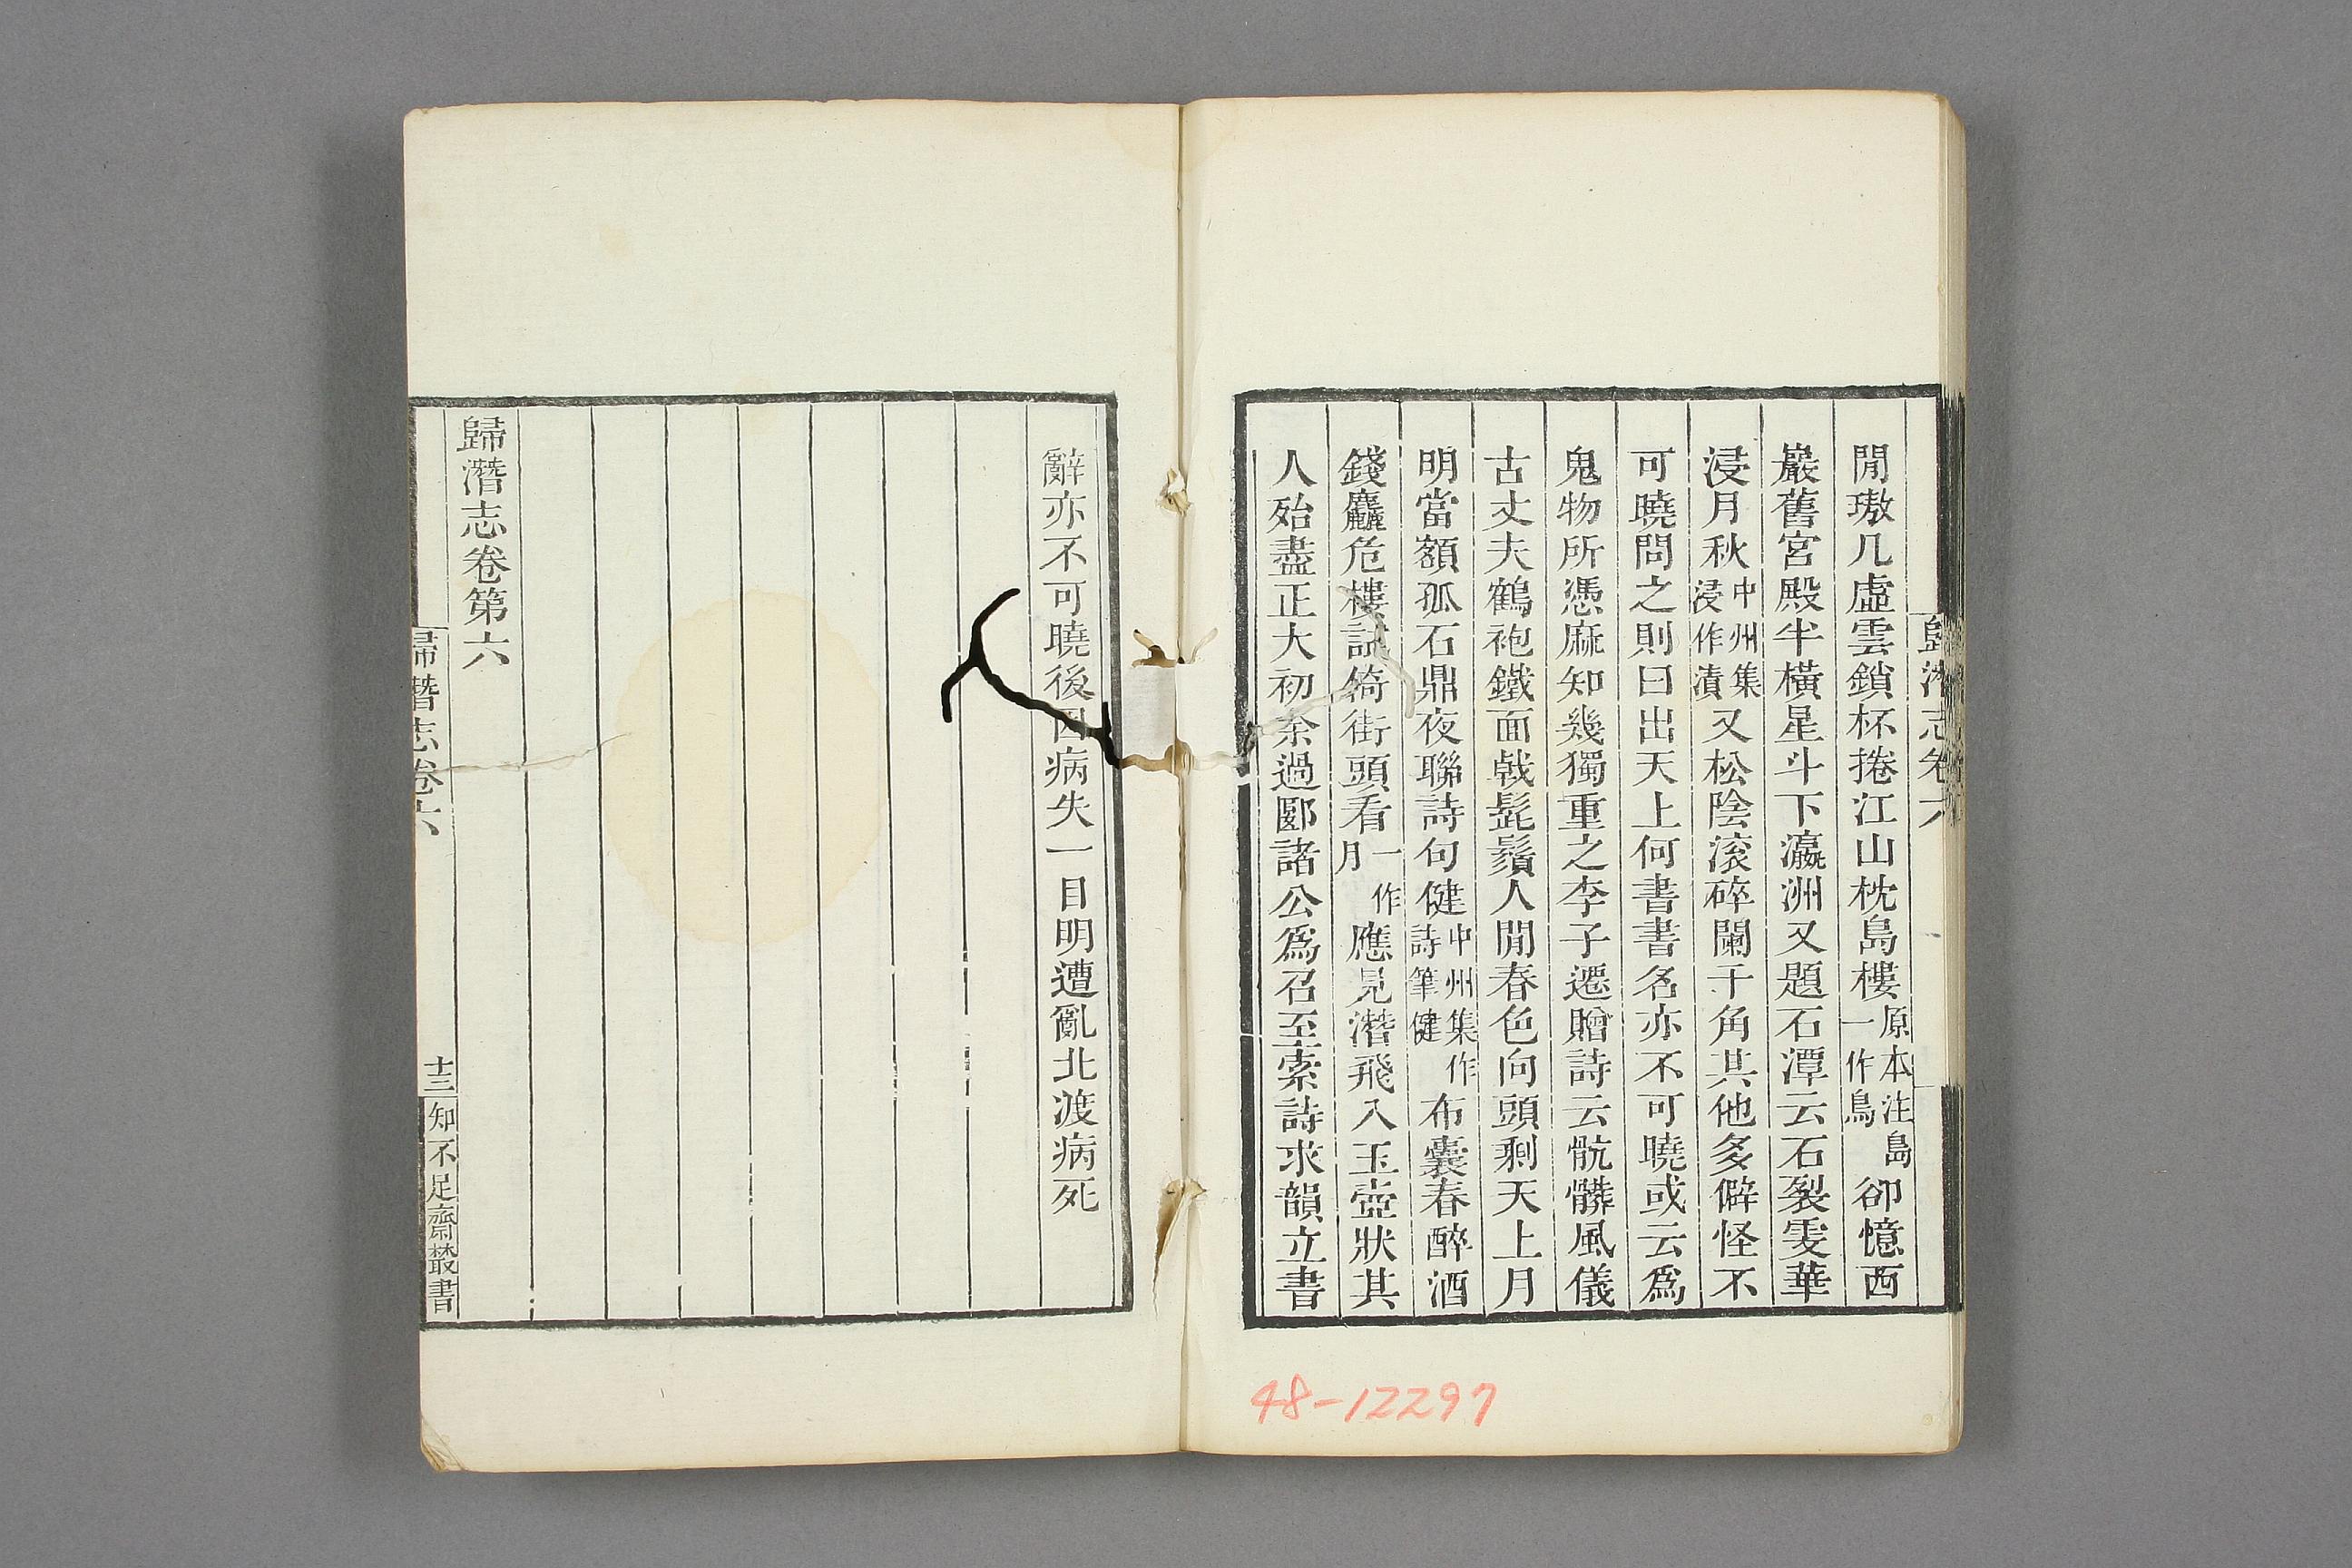 閒璈几虛雲鎖杯捲江山枕島樓原本注島一作鳥卻憶西
巖舊宮殿半橫星斗下瀛洲又題石潭云石裂雯華
浸月秋中州集浸作漬又松陰滚碎闌干角其他多僻怪不
可曉問之則曰出天上何書書名亦不可曉或云為
鬼物所憑麻知幾獨重之李子遷贈詩云骯髒風儀
古丈夫鶴袍鐵面戟髭鬚人閒春色向頭剩天上月
明當額孤石鼎夜聯詩句健中州集作詩筆健布囊春醉酒
錢麤危樓試倚街頭看一作月應見潛飛入玉壺狀其
人殆盡正大初余過郾諸公爲召至索詩求韻立書
辭亦不可曉後因病失一目明遭亂北渡病死
歸潛志卷第六
歸潛志卷六
十三
知不足齋叢書
48-12297